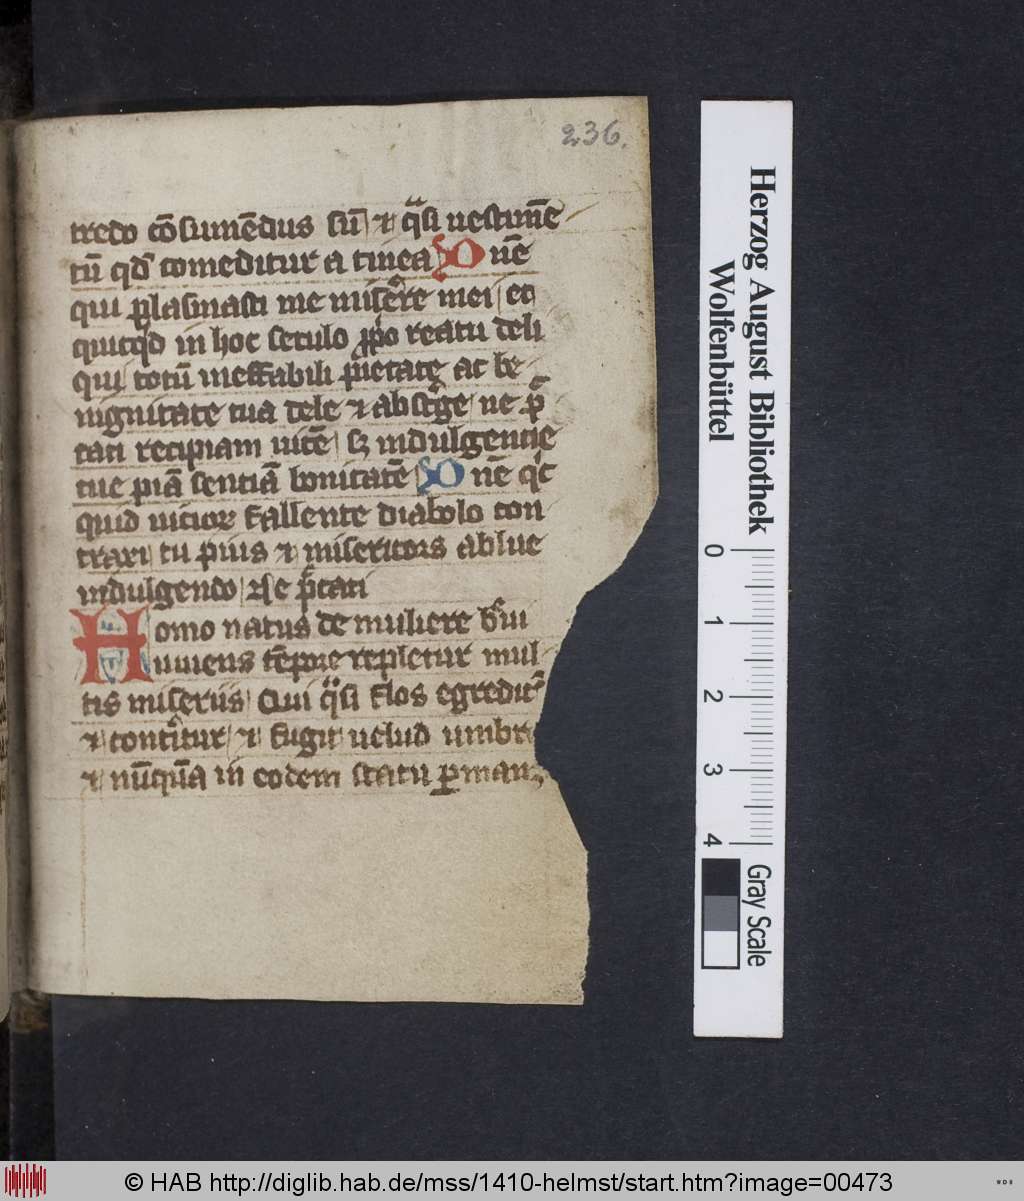 236.
tredo cōsumēdus sū et qͣsi uestimē
tū qđ comeditur a tinea Onē
qui plasmasti me miserere mei et
quicqͥd in hoc seculo ꝓpͦo reatu deli
qui totū ineffabili pietate ac be
nignitate tua dele et abstͤge ne p̄c
cati recipiam uicē sꝫ indulgentie
tue piā sentiā bonitatē Onē qͥc
quid uicioꝝ fallente diabolo con
traxi tu pius et misericors ablue
indulgendo Esse p̄ccati
Homo natus de muliere bͤui
uiuens tēpore repletur mul
tis miseriis Qui qͣsi flos egredit᷑
et conterͥtur et fugit uelud umbra
et nūqūa in eodem statu ꝑmanꝫ
Herzog August Bibliothek
Wolfenbüttel
0 1 2 3 4
Gray Scale
© HAB http://diglib.hab.de/mss/1410-helmst/start.htm?image=00473